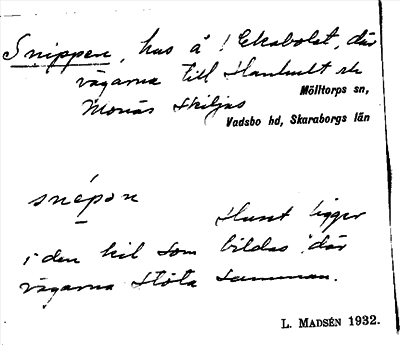 Snippen, hus å Ekabolet, där
vägarna till Hanhult och
Monäs skiljas
Mölltorps sn,
Vadsbo hd, Skaraborgs län
snépon
Huset ligger
i den kil som bildas, där
vägarna stöta samman.
L. MADSÉN 1932.